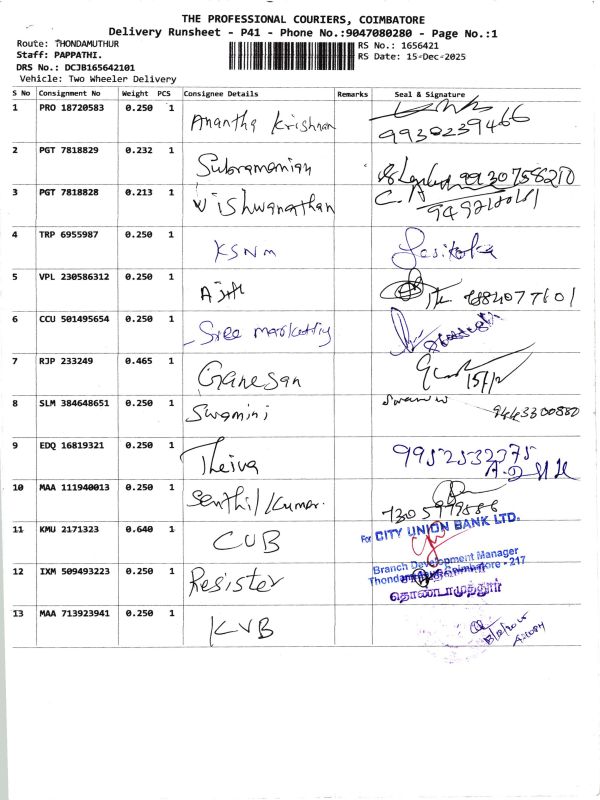 THE PROFESSIONAL COURIERS, COIMBATORE
Delivery Runsheet - P41 - Phone No.:9047080280 - Page No.:1
Route: THONDAMUTHUR
RS No.: 1656421
Staff: PAPPATHI.
RS Date: 15-Dec-2025
DRS No.: DCJB165642101
Vehicle: Two Wheeler Delivery
S No Consignment No Weight PCS Consignee Details Remarks Seal & Signature
1 PRO 18720583 0.250 1 Anantha Krishnan
9930239466
2 PGT 7818829 0.232 1 Subramanian 9930758210
3 PGT 7818828 0.213 1 Vishwanathan
4 TRP 6955987 0.250 1 KSNM
5 VPL 230586312 0.250 1
6 CCU 501495654 0.250 1 Sree
7 RJP 233249 0.465 1 Ganesan
8 SLM 384648651 0.250 1 Swamini
9443300880
9 EDQ 16819321 0.250 1 Theiva 9952532375
10 MAA 111940013 0.250 1 Senthil Kumar.
11 KMU 2171323 0.640 1 CUB
For CITY UNION BANK LTD.
Branch Development Manager
12 IXM 509493223 0.250 1 Resister
Coimbatore - 217
தொண்டாமுத்தூர்
13 MAA 713923941 0.250 1 KVB